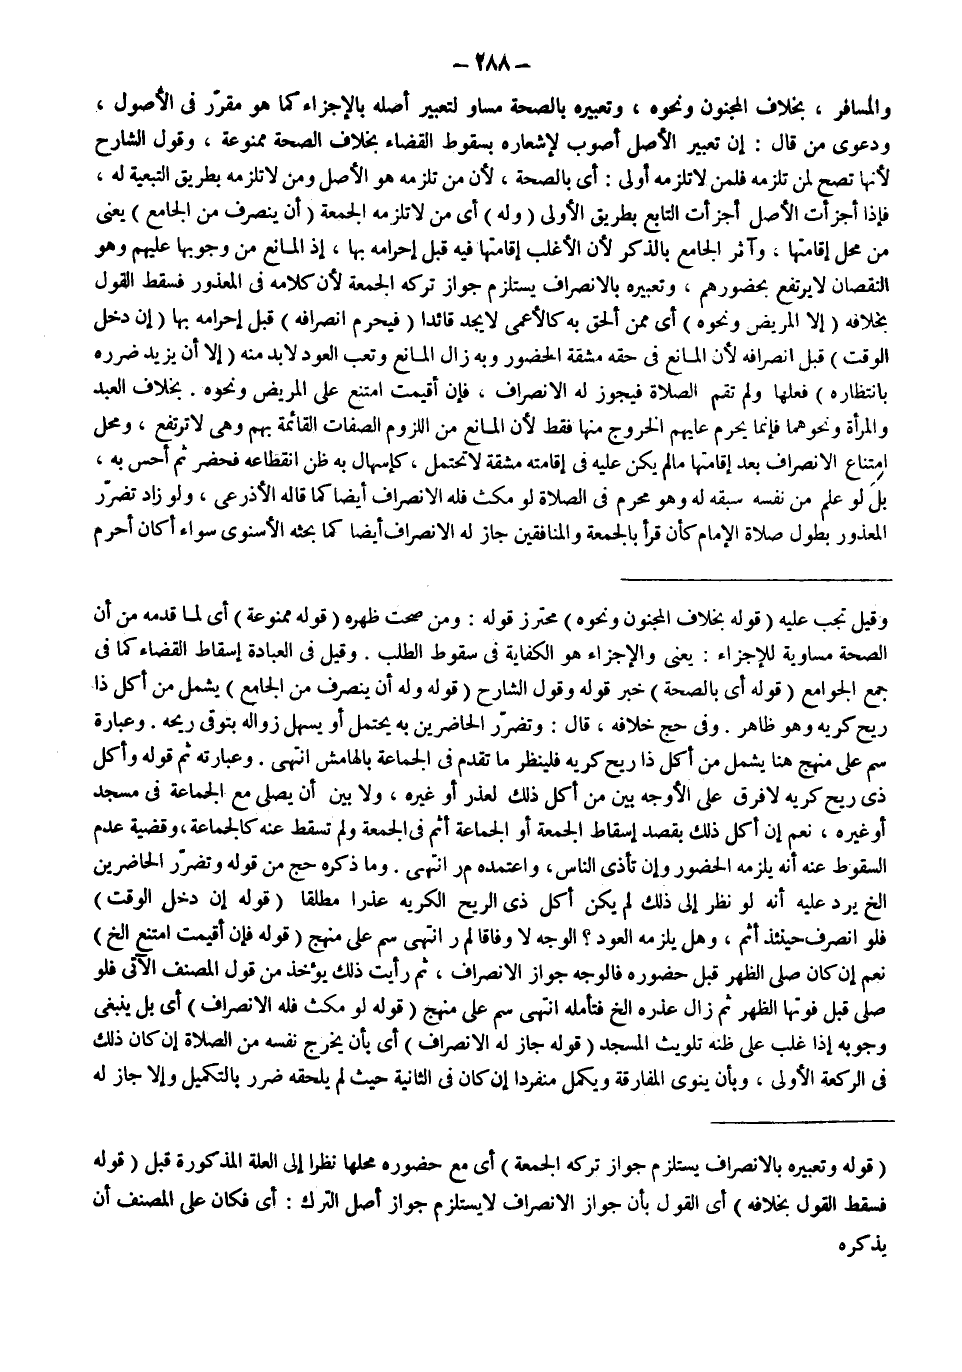 – ٢٨٨ –
والمسافر ، بخلاف المجنون ونحوه ، وتعبيره بالصحة مساو لتعبير أصله بالإجزاء كما هو مقرّر فى الأصول ،
ودعوى من قال : إن تعبير الأصل أصوب لإشعاره بسقوط القضاء بخلاف الصحة ممنوعة ، وقول الشارح
لأنها تصح لمن تلزمه فلمن لاتلزمه أولى : أى بالصحة ، لأن من تلزمه هو الأصل ومن لاتلزمه بطريق التبعية له ،
فإذا أجزأت الأصل أجزأت التابع بطريق الأولى ( وله ) أى من لاتلزمه الجمعة ( أن ينصرف من الجامع ) يعنى
من محل إقامتها ، وآثر الجامع بالذكر لأن الأغلب إقامتها فيه قبل إحرامه بها ، إذ المانع من وجوبها عليهم وهو
النقصان لايرتفع بحضورهم ، وتعبيره بالانصراف يستلزم جواز تركه الجمعة لأن كلامه فى المعذور فسقط القول
بخلافه ( إلا المريض ونحوه ) أى ممن ألحق به كالأعمى لايجد قائدا ( فيحرم انصرافه ) قبل إحرامه بها ( إن دخل
الوقت ) قبل انصرافه لأن المانع فى حقه مشقة الحضور وبه زال المانع وتعب العود لابد منه ( إلا أن يزيد ضرره
بانتظاره ) فعلها ولم تقم الصلاة فيجوز له الانصراف ، فإن أقيمت امتنع على المريض ونحوه . بخلاف العبد
والمرأة ونحوهما فإنما يحرم عليهم الخروج منها فقط لأن المانع من اللزوم الصفات القائمة بهم وهى لاترتفع ، ومحل
امتناع الانصراف بعد إقامتها مالم يكن عليه فى إقامته مشقة لاتحتمل ، كإسهال به ظن انقطاعه فحضر ثم أحس به ،
بل لو علم من نفسه سبقه له وهو محرم فى الصلاة لو مكث فله الانصراف أيضا كما قاله الأذرعى ، ولو زاد تضرّر
المعذور بطول صلاة الإمام كأن قرأ بالجمعة والمنافقين جاز له الانصراف أيضا كما بحثه الأسنوى سواء أكان أحرم
وقيل تجب عليه ( قوله بخلاف المجنون ونحوه ) محترز قوله : ومن صحت ظهره ( قوله ممنوعة ) أى لما قدمه من أن
الصحة مساوية للإجزاء : يعنى والإجزاء هو الكفاية فى سقوط الطلب . وقيل فى العبادة إسقاط القضاء كما فى
جمع الجوامع ( قوله أى بالصحة ) خبر قوله وقول الشارح ( قوله وله أن ينصرف من الجامع ) يشمل من أكل ذا
ريح كريه وهو ظاهر . وفى حج خلافه ، قال : وتضرّر الحاضرين به يحتمل أو يسهل زواله بتوقى ريحه . وعبارة
سم على منهج هنا يشمل من أكل ذا ريح كريه فلينظر ما تقدم فى الجماعة بالهامش انتهى . وعبارته ثم قوله وأكل
ذى ريح كريه لافرق على الأوجه بين من أكل ذلك لعذر أو غيره ، ولا بين أن يصلى مع الجماعة فى مسجد
أو غيره ، نعم إن أكل ذلك بقصد إسقاط الجمعة أو الجماعة أثم فى الجمعة ولم تسقط عنه كالجماعة ، وقضية عدم
السقوط عنه أنه يلزمه الحضور وإن تأذى الناس ، واعتمده مر انتهى . وما ذكره حج من قوله وتضرّر الحاضرين
الخ يرد عليه أنه لو نظر إلى ذلك لم يكن أكل ذى الريح الكريه عذرا مطلقا ( قوله إن دخل الوقت )
فلو انصرف حينئذ أثم ، وهل يلزمه العود ؟ الوجه لا وفاقا لم ر انتهى سم على منهج ( قوله فإن أقيمت امتنع الخ )
نعم إن كان صلى الظهر قبل حضوره فالوجه جواز الانصراف ، ثم رأيت ذلك يؤخذ من قول المصنف الآتى فلو
صلى قبل فوتها الظهر ثم زال عذره الخ فتأمله انتهى سم على منهج ( قوله لو مكث فله الانصراف ) أى بل ينبغى
وجوبه إذا غلب على ظنه تلويث المسجد ( قوله جاز له الانصراف ) أى بأن يخرج نفسه من الصلاة إن كان ذلك
فى الركعة الأولى ، وبأن ينوى المفارقة ويكمل منفردا إن كان فى الثانية حيث لم يلحقه ضرر بالتكميل وإلا جاز له
( قوله وتعبيره بالانصراف يستلزم جواز تركه الجمعة ) أى مع حضوره محلها نظرا إلى العلة المذكورة قبل ( قوله
فسقط القول بخلافه ) أى القول بأن جواز الانصراف لايستلزم جواز أصل الترك : أى فكان على المصنف أن
يذكره